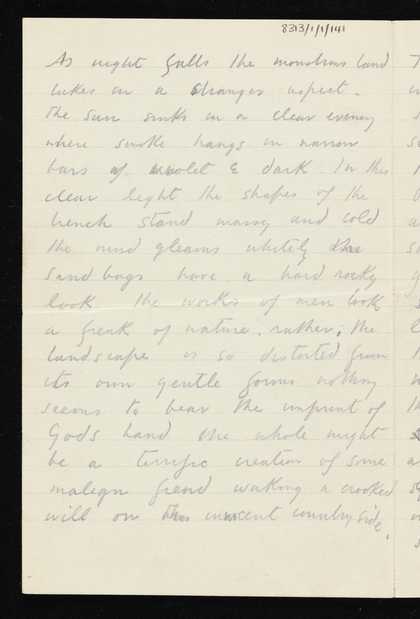 8313/1/1/141
As night falls the monstrous land
takes on a stranger aspect.
The sun sinks in a clear evening
where smoke hangs in narrow
bars of violet & dark. In this
clear light the shapes of the
trench stand massy and cold
the mud gleams whitely the
sandbags have a hard rocky
look the works of men look
a freak of nature, rather, the
landscape is so distorted from
its own gentle forms nothing
seems to bear the imprint of
Gods hand the whole might
be a terrific creation of some
malign fiend working a crooked
will on this innocent country side.